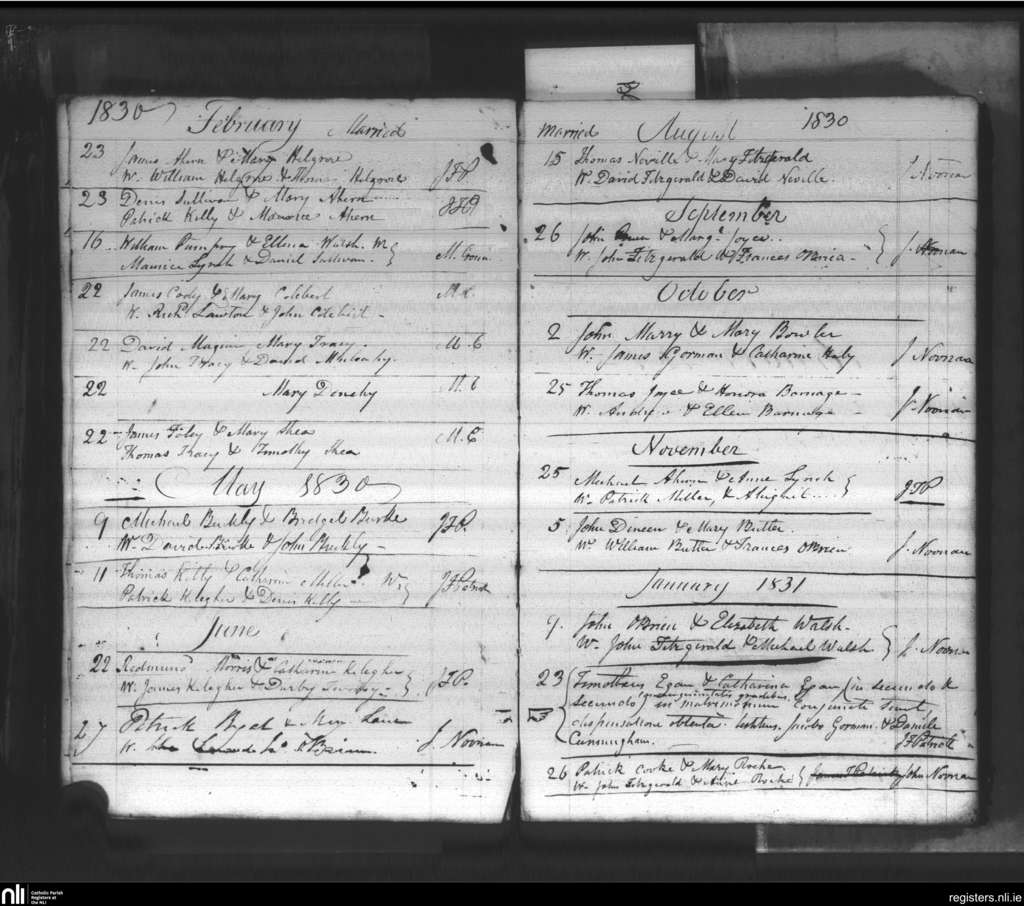 1830
February Married
23 James Ahern & Mary Helgrove
W. William Helgrove & Thomas Helgrove JFP
23 Denis Sullivan & Mary Ahern
Patrick Kelly & Maurice Ahern JFP
16 William Pumfry & Ellena Walsh. W
Maurice Lynch & Daniel Sullivan. M.
22 James Cody & Mary Colbert
W. Richd Lawton & John Colbert
22 David Mary Tracy. M C
W. John Tracy & David
22 Mary Donohy M. C
22 James Foley & Mary Shea
Thomas Tracy & Timothy Shea M. C
May 1830
9 Michael Buckly & Bridget Burke
W. David Burke & John Buckly JFP.
11 Thomas Kelly & Catherin W
Patrick Kelegher & Denis Kelly
June
22 Redmund Morris & Catharine Kelegher
W. James Kelegher & Darby JFP.
27 Patrick &
W. J. Noonan
Married August 1830
15 Thomas Neville & Mary Fitzgerald
W David Fitzgerald & David Neville. J Noonan
September
26 John & Margt Joyce..
W. John Fitzgerald & Frances OBrien J. Noonan
October
2 John Marry & Mary Bowler
W. James Gorman & Catharine J Noonan
25 Thomas Joyce & Honora Barnage
W. & Ellen Barnage J. Noonan
November
25 Michael Ahern & Anne Lynch
W. Patrick Miller, & JFP
5 John Dineen & Mary Butler.
W. William Butler & Frances OBrien J. Noonan
January 1831
9. John OBrien & Elizabeth Walsh
W. John Fitzgerald & Michael Walsh J. Noonan
23 Timotheus Egan & Catharina Egan (in secundo &
secundo consanguinitatis gradibus) in matrimonium conjuncti sunt,
23 dispensatione obtenta. testibus, Jacobo Gorman & Daniele
Cunningham.
26 Patrick Cooke & Mary Roche
W. John Fitzgerald & Roche John Noonan
nli Catholic Parish
Registers at
the NLI
registers.nli.ie